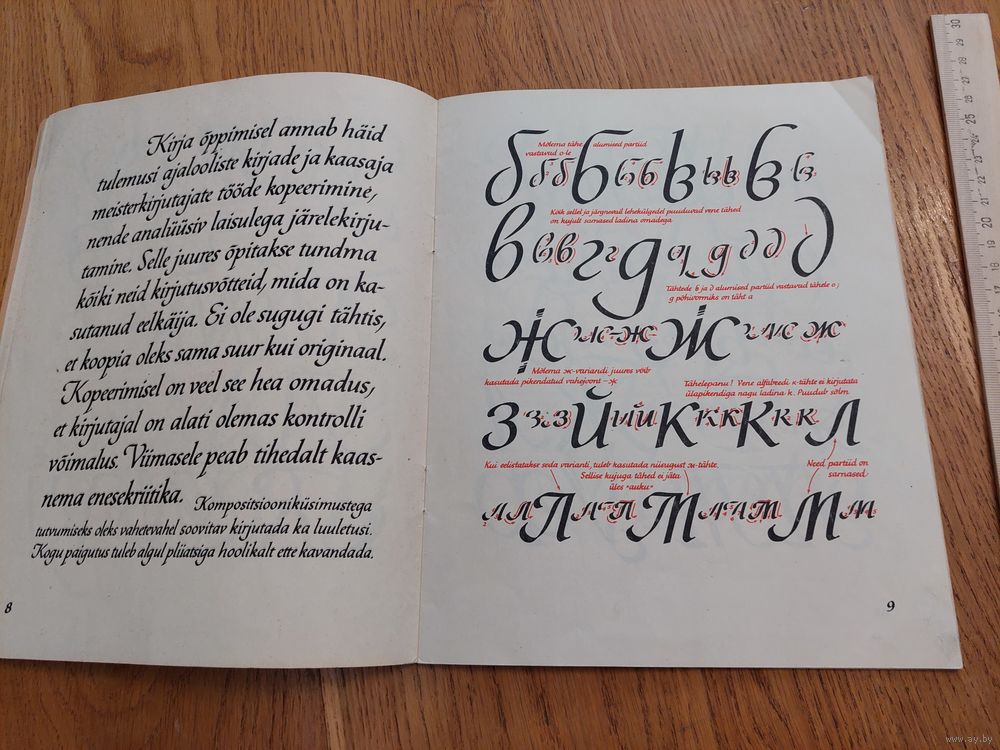 Kirja õppimisel annab häid
tulemusi ajalooliste kirjade ja kaasaja
meisterkirjutajate tööde kopeerimine,
nende analüüsiv laisulega järelekirju-
tamine. Selle juures õpitakse tundma
kõiki neid kirjutusvõtteid, mida on ka-
sutanud eelkäija. Ei ole sugugi tähtis,
et koopia oleks sama suur kui originaal.
Kopeerimisel on veel see hea omadus,
et kirjutajal on alati olemas kontrolli
võimalus. Viimasele peab tihedalt kaas-
nema enesekriitika. Kompositsiooniküsimustega
tutvumiseks oleks vahetevahel soovitav kirjutada ka luuletusi.
Kogu paigutus tuleb algul pliiatsiga hoolikalt ette kavandada.
8
Mõlema tähe alumised partiid
vastavad o-le
Kõik sellel ja järgnevail lehekülgedel puuduvad vene tähed
on kujult sarnased ladina omadega
Tähtede в ja д alumised partiid vastavad tähele o;
g põhivormiks on täht a
Mõlema ж-variandi juures võib
kasutada pikendatud vahejoont – ж
Tähelepanu! Vene alfabeedi к-tähte ei kirjutata
ülapikendiga nagu ladina k. Puudub sõlm
з з з з й и и й к к к к к к л
Kui eelistatakse seda varianti, tuleb kasutada niisugust ж-tähte.
Sellise kujuga tähed ei jäta
üles «auku»
Need partiid on
sarnased
9
30
29
28
27
26
25
24
23
22
21
20
19
18
17
www.ay.by